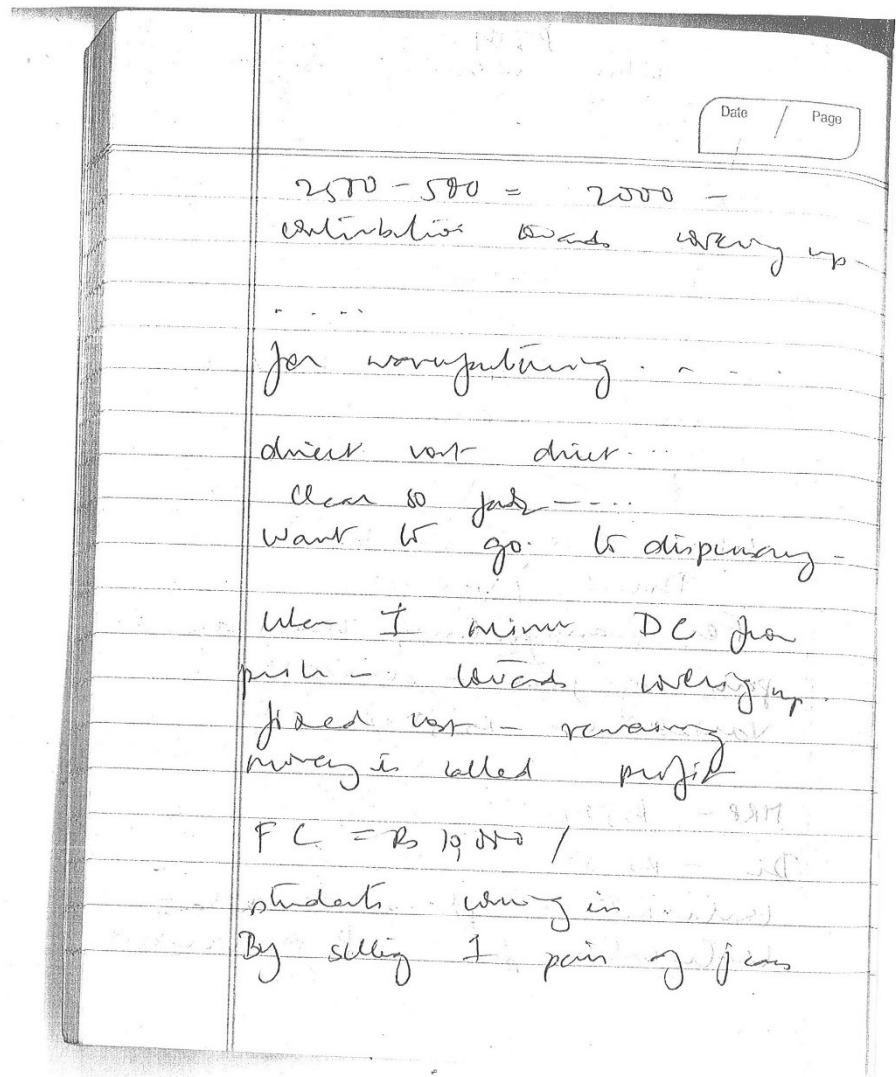 Date / Page
2500 - 500 = 2000 -
contribution towards covering up -
.....
for manufacturing.....
direct cost direct...
Clear so far -....
want to go to dispensary -
When I minus DC from
towards covering up.
fixed cost - remaining
money is called profit
FC = Rs 10,000 /
students coming in
By selling 1 pair of jeans